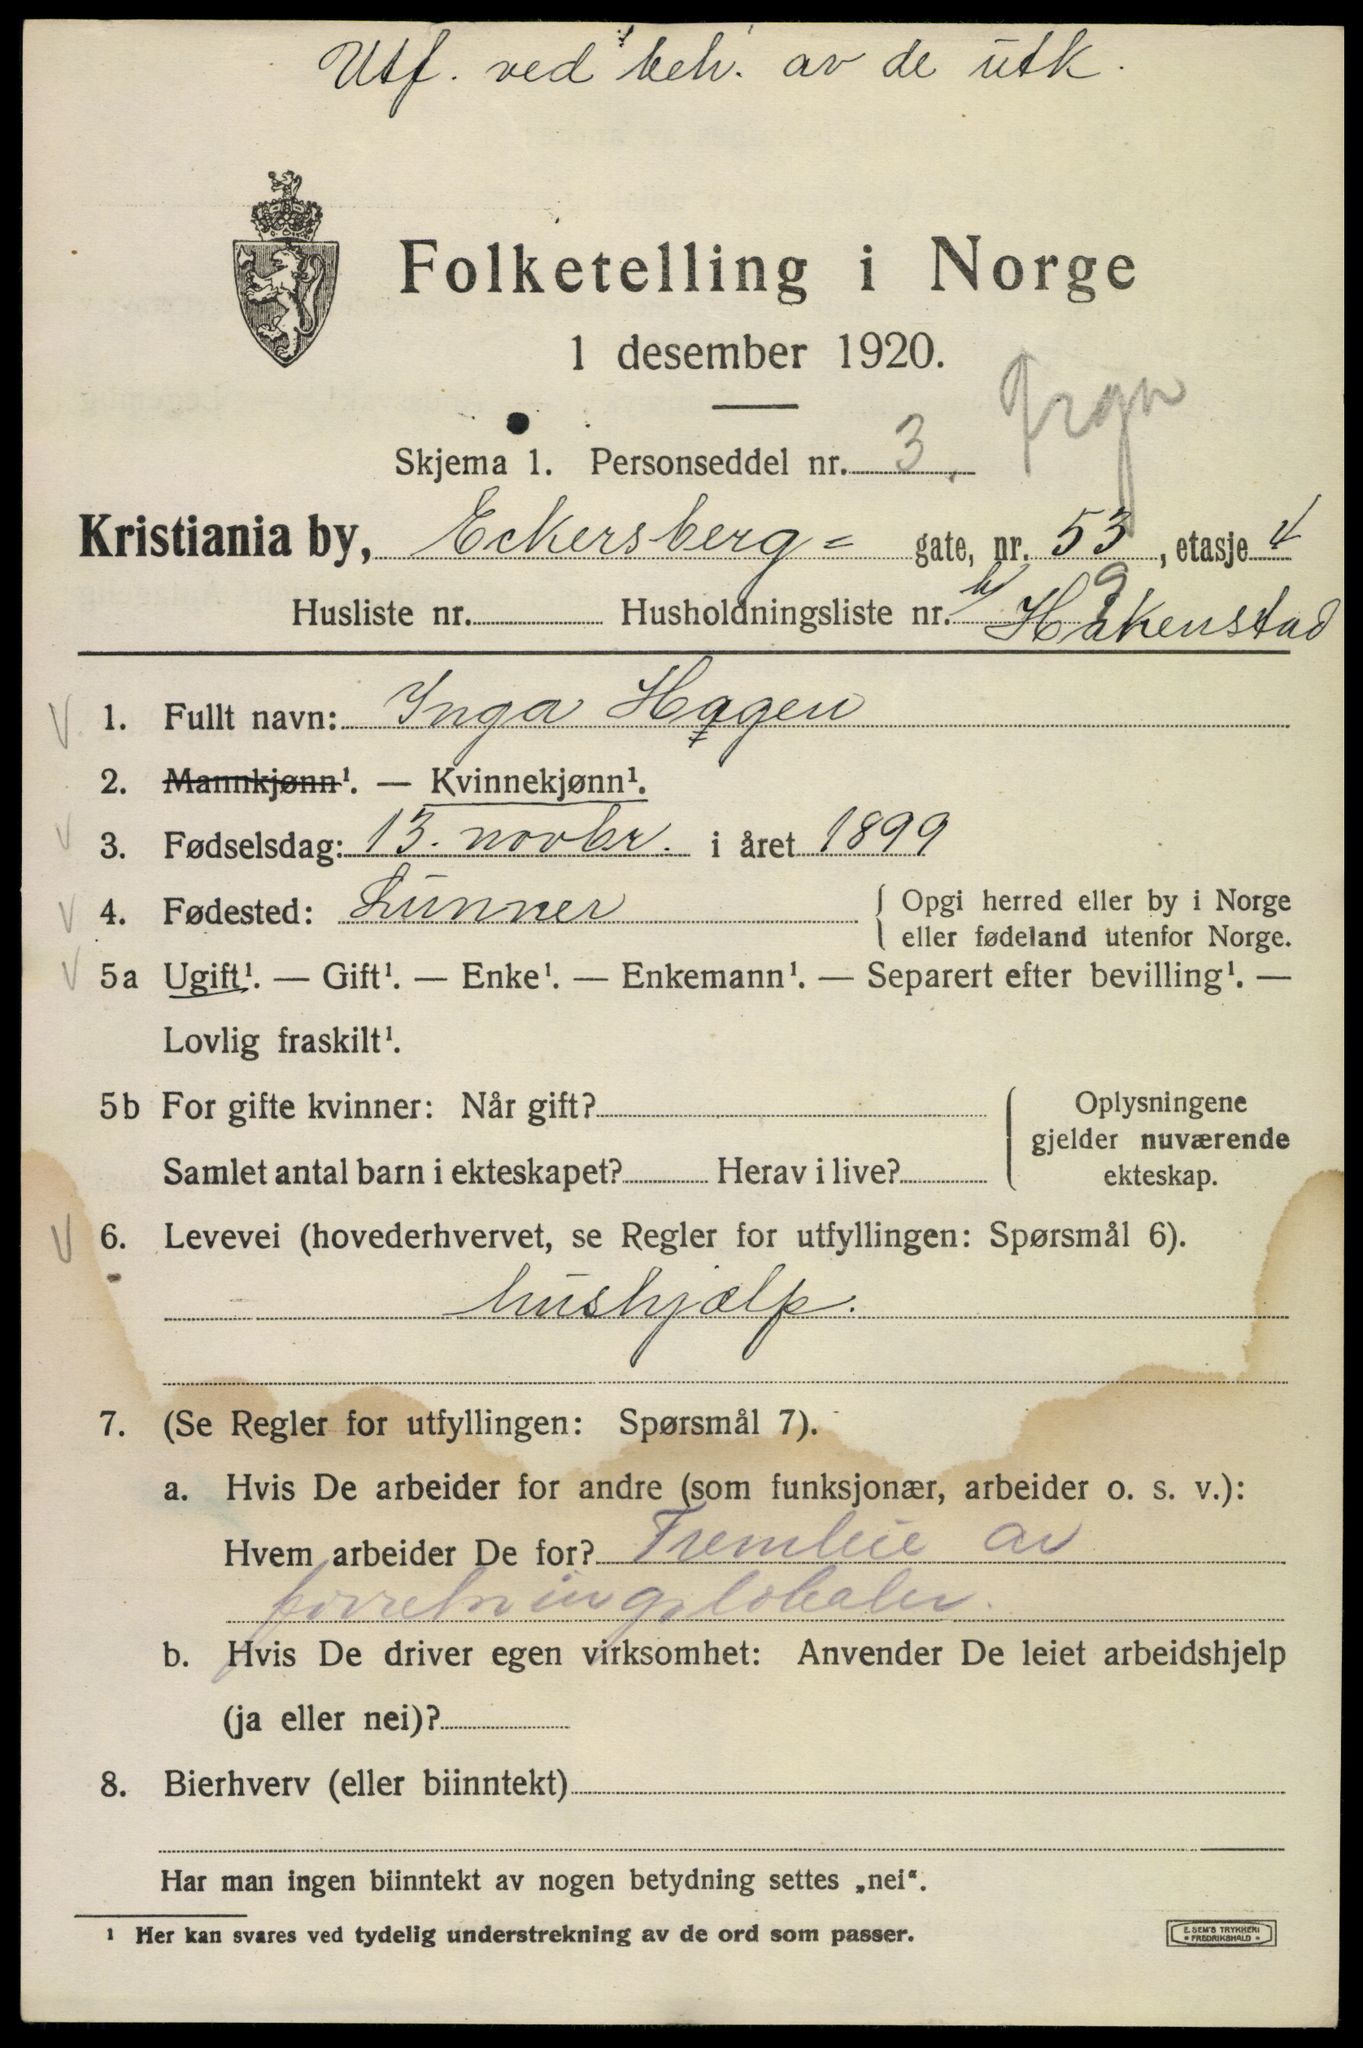 Utf. ved beh. av de utk.
Folketelling i Norge
1 desember 1920.
Skjema 1. Personseddel nr. 3.
Kristiania by, Eckersberg= gate, nr. 53, etasje 4
Husliste nr. Husholdningsliste nr. b/ Håkenstad
1. Fullt navn: Inga Hagen
2. Mannkjønn¹. — Kvinnekjønn¹.
3. Fødselsdag: 13. novbr. i året 1899
4. Fødested: Lunner { Opgi herred eller by i Norge
eller fødeland utenfor Norge.
5a Ugift¹. — Gift¹. — Enke¹. — Enkemann¹. — Separert efter bevilling¹. —
Lovlig fraskilt¹.
5b For gifte kvinner: Når gift? Oplysningene
gjelder nuværende
Samlet antal barn i ekteskapet? Herav i live? ekteskap.
6. Levevei (hovederhvervet, se Regler for utfyllingen: Spørsmål 6).
hushjælp.
7. (Se Regler for utfyllingen: Spørsmål 7).
a. Hvis De arbeider for andre (som funksjonær, arbeider o. s. v.):
Hvem arbeider De for? Fremleie av
forretningslokaler.
b. Hvis De driver egen virksomhet: Anvender De leiet arbeidshjelp
(ja eller nei)?
8. Bierhverv (eller biinntekt)
Har man ingen biinntekt av nogen betydning settes „nei“.
¹ Her kan svares ved tydelig understrekning av de ord som passer.
E. SEM'S TRYKKERI
FREDRIKSHALD